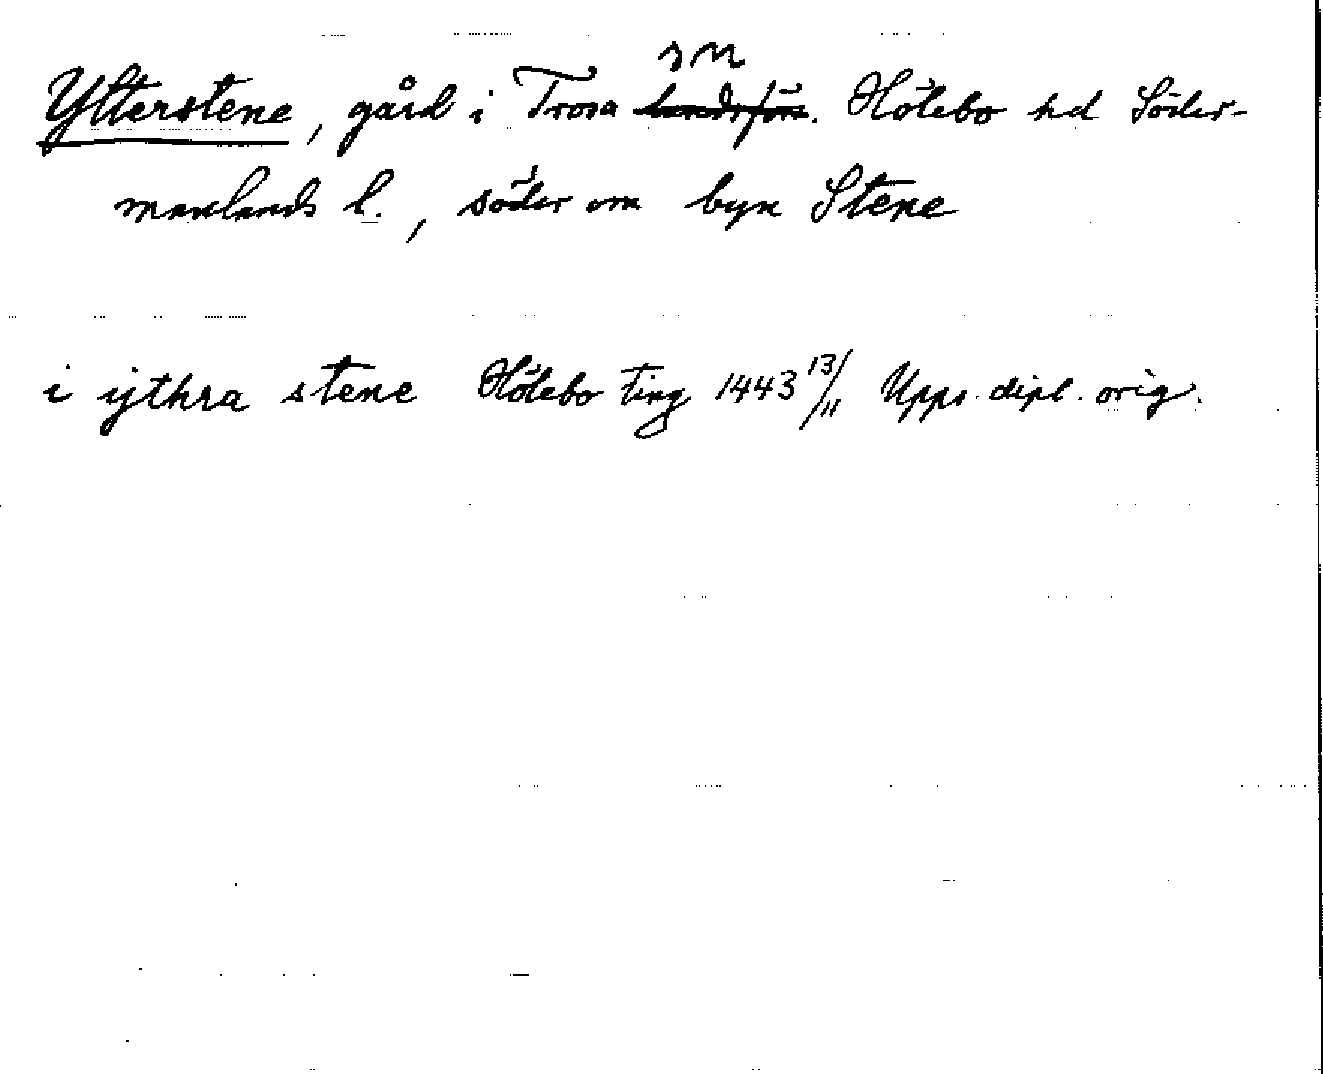 sn
Ytterstene, gård i Trosa landsförs. Hölebo hd Söder-
manlands l., söder om byn Stene
i ythra stene Hölebo ting 1443 13/11 Upps. dipl. orig.